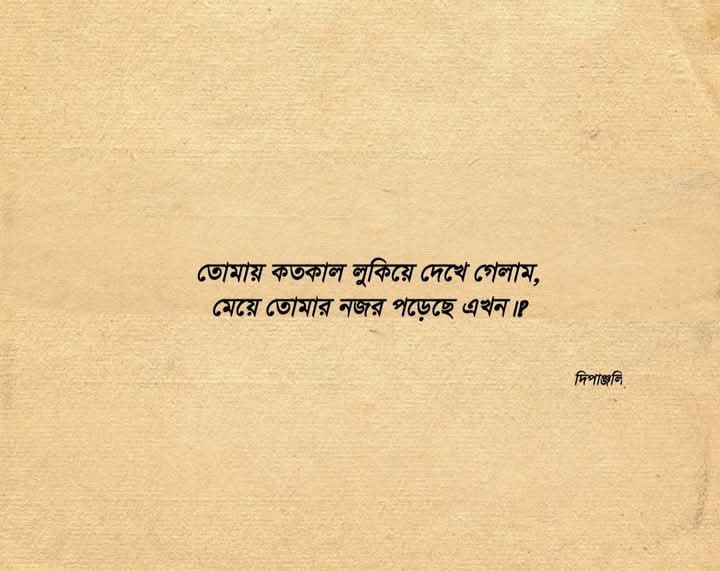 তোমায় কতকাল লুকিয়ে দেখে গেলাম,
মেয়ে তোমার নজর পড়েছে এখন।?
দিপাঞ্জলি